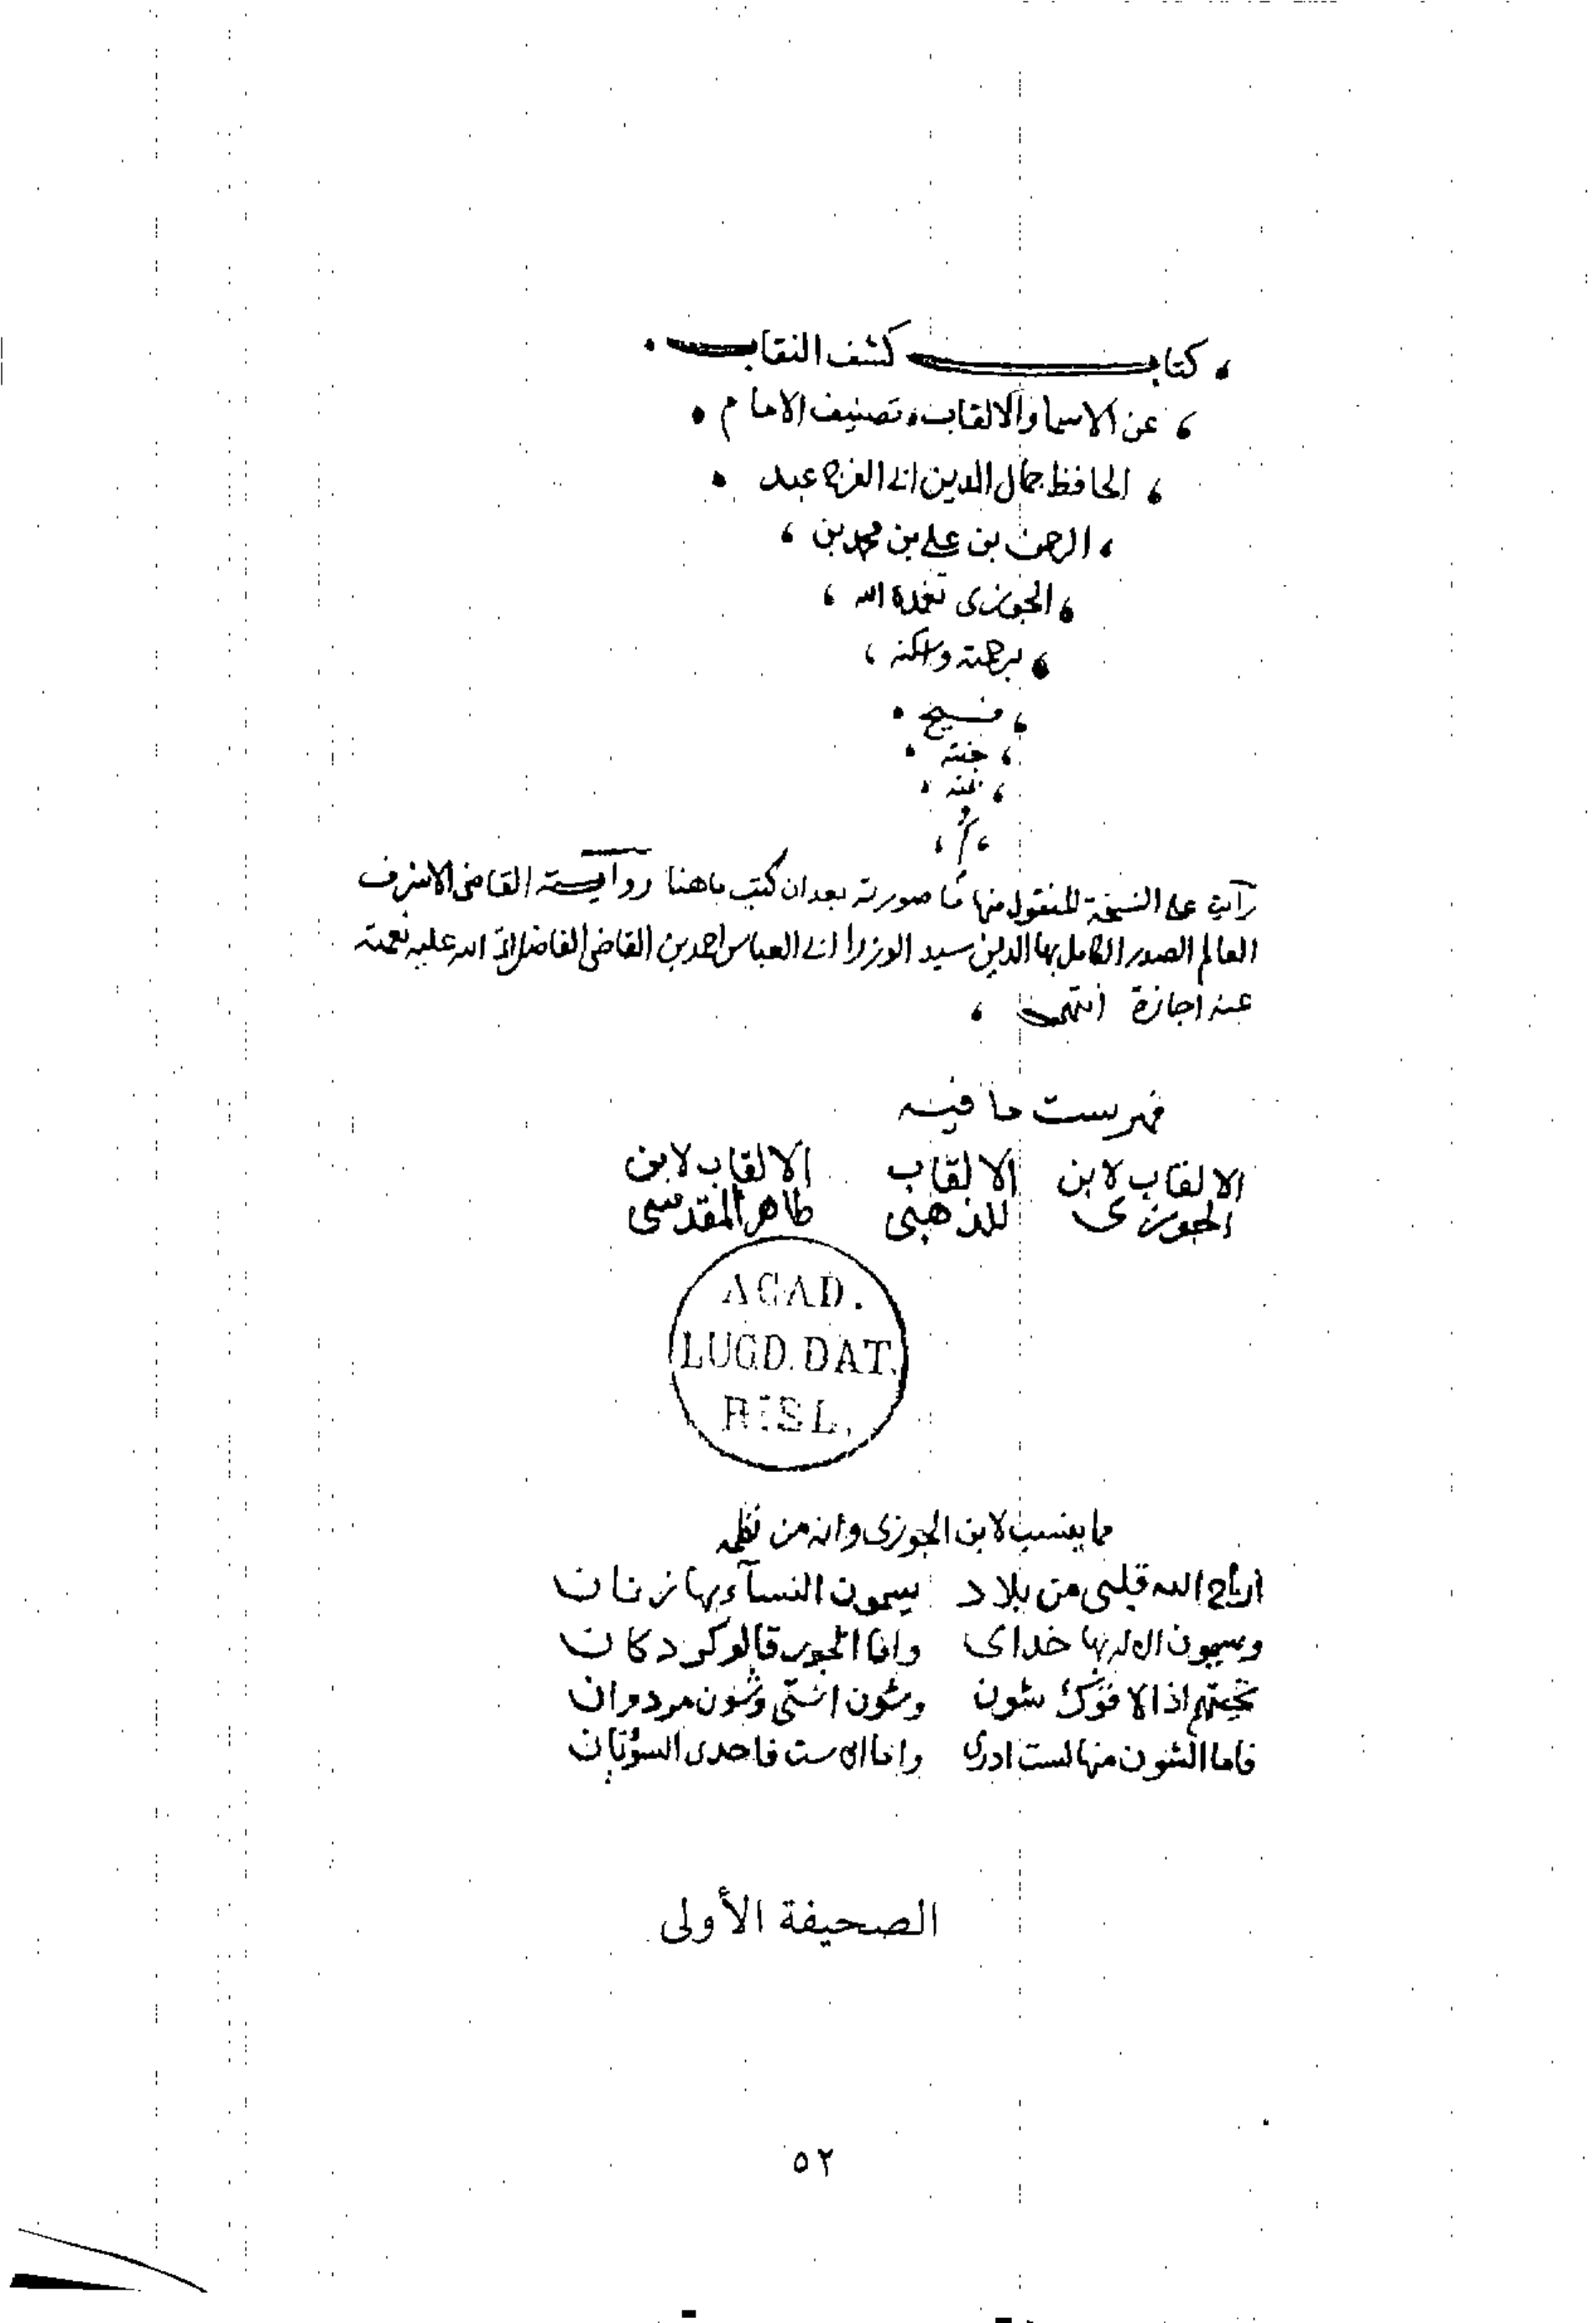 كتاب كشف النقاب
عن الاسما والالقاب تصنيف الامام
الحافظ جمال الدين ابى الفرج عبد
الرحمن بن على بن محمد بن
الجوزى تغمده الله
برحمته واسكنه
فسيح
جنته
بمنه
رأيت على النسخة المنقول منها ما صورته بعد ان كتب ما هنا رواية القاضى الاشرف
العالم الصدر الكامل بها الدين سيد الوزرا ابى العباس احمد بن القاضى الفاضل الله عليه نعمته
عنه اجازة انتهى
فهرست ما فيه
الالقاب لابن الالقاب الالقاب لابن
الجوزى للذهبى طاهر المقدسى
ACAD.
LUGD. BAT.
BIBL.
مما ينسب لابن الجوزى وانه من نظمه
اراح الله قلبى من بلاد يسمون النسآء بها زنان
ويسمون الاله بها خداى واما قالو كردكان
تحيتهم اذا لاقوك شون وشون اشتى وشون مردمان
فاما الشون منها لست ادرى واما است فاحدى
الصحيفة الأولى
٥٢